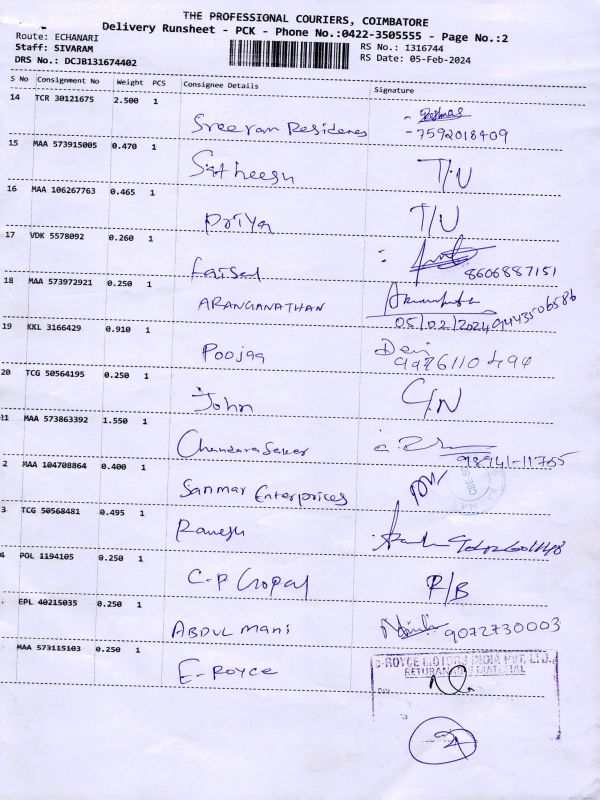 THE PROFESSIONAL COURIERS, COIMBATORE
Delivery Runsheet - PCK - Phone No.:0422-3505555 - Page No.:2
Route: ECHANARI
Staff: SIVARAM
DRS No.: DCJB131674402
RS No.: 1316744
RS Date: 05-Feb-2024
S No Consignment No Weight PCS Consignee Details Signature
14 TCR 30121675 2.500 1
Sreeram Residency
- 7592018409
15 MAA 573915005 0.470 1
Satheesh T/U
16 MAA 106267763 0.465 1
Priya T/U
17 VDK 5578092 0.260 1
Faisal 8606887151
18 MAA 573972921 0.250 1
ARANGANATHAN
05/02/2024 9443506586
19 KKL 3166429 0.910 1
Poojaa
20 TCG 50564195 0.250 1
John C/N
11 MAA 573863392 1.550 1
Chandrasekar 98941-11755
2 MAA 104708864 0.400 1
Sanmar Enterprices
3 TCG 50568481 0.495 1
Ramesh
4 POL 1194105 0.250 1
C-P Gopal P/B
EPL 40215035 0.250 1
ABDUL Mani 9072730003
MAA 573115103 0.250 1
E-ROYCE
E-ROYCE MOTORS INDIA PVT. LTD.,
RETURANABLE MATERIAL